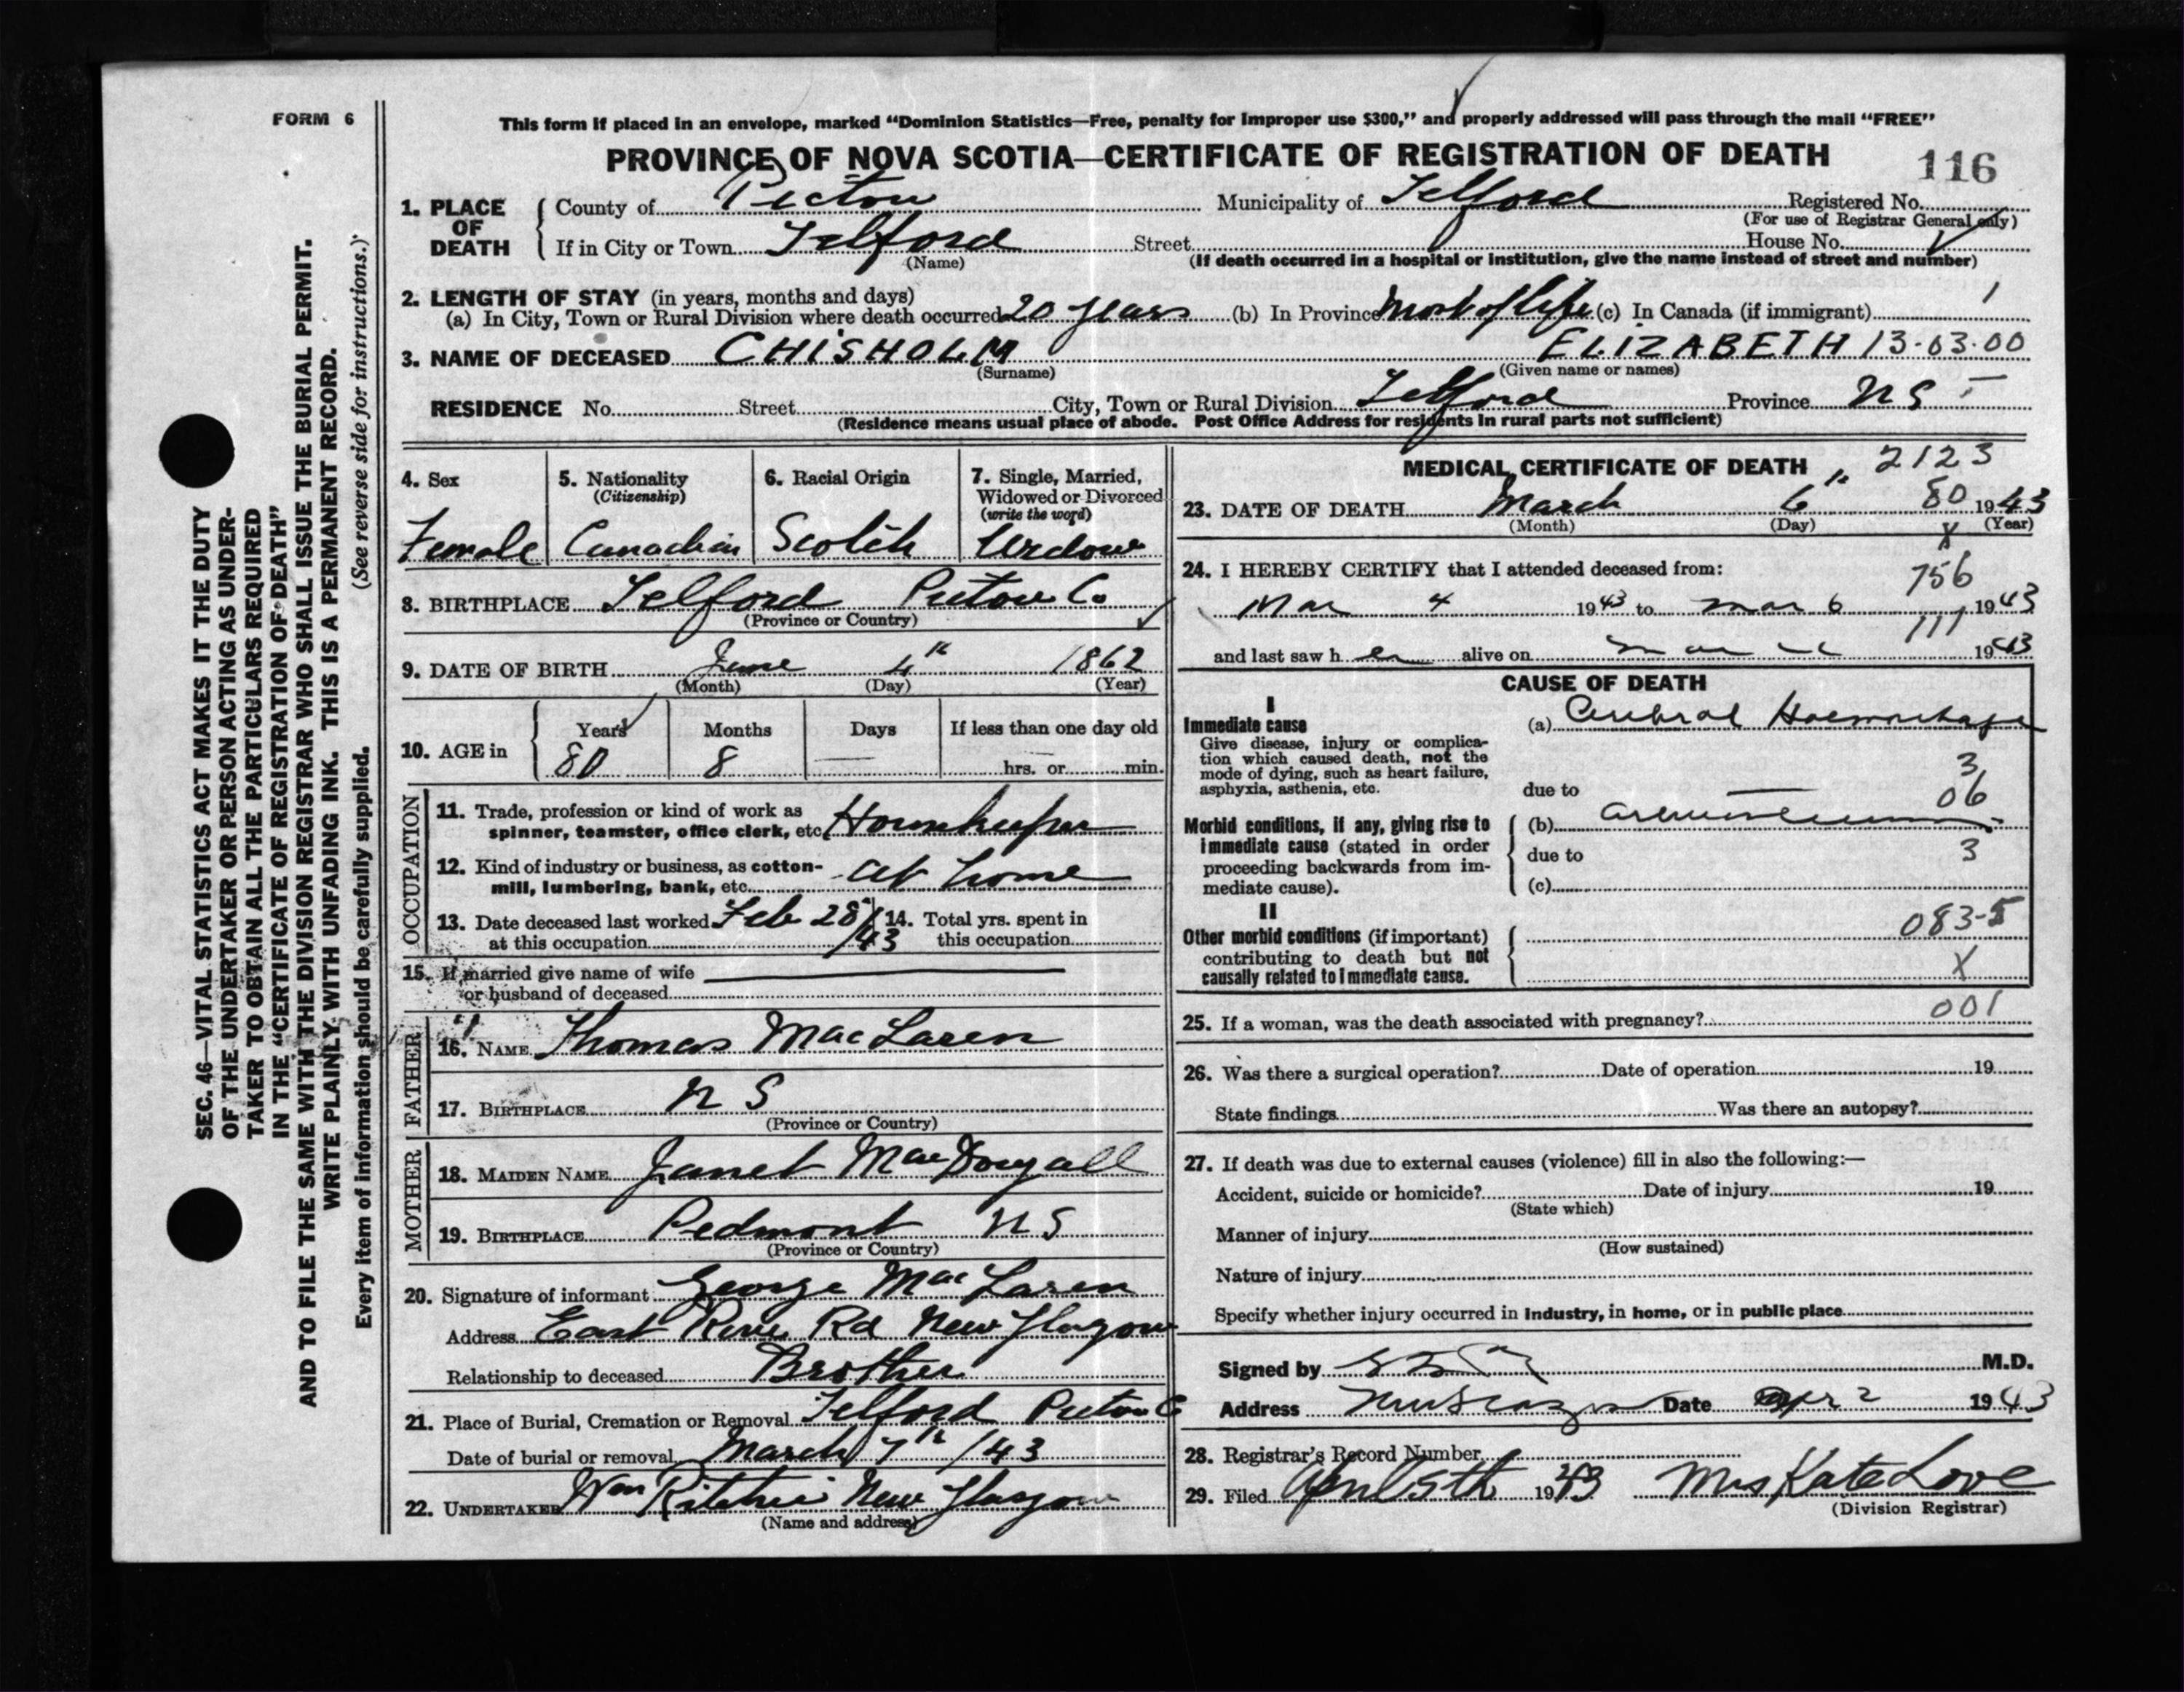 FORM 6
This form if placed in an envelope, marked “Dominion Statistics—Free, penalty for improper use $300,” and properly addressed will pass through the mail “FREE”
PROVINCE OF NOVA SCOTIA—CERTIFICATE OF REGISTRATION OF DEATH 116
1. PLACE OF DEATH County of Pictou Municipality of Telford Registered No.
(For use of Registrar General only)
If in City or Town Telford Street House No.
(Name) (If death occurred in a hospital or institution, give the name instead of street and number)
2. LENGTH OF STAY (in years, months and days)
(a) In City, Town or Rural Division where death occurred 20 years (b) In Province Most of life (c) In Canada (if immigrant) 1
3. NAME OF DECEASED CHISHOLM ELIZABETH 13-03-00
(Surname) (Given name or names)
RESIDENCE No. Street City, Town or Rural Division Telford Province N S
(Residence means usual place of abode. Post Office Address for residents in rural parts not sufficient)
4. Sex 5. Nationality (Citizenship) 6. Racial Origin 7. Single, Married, Widowed or Divorced (write the word)
Female Canadian Scotch Widow
8. BIRTHPLACE Telford Pictou Co
(Province or Country)
9. DATE OF BIRTH June 4th 1862
(Month) (Day) (Year)
10. AGE in Years Months Days If less than one day old
80 8 — hrs. or min.
OCCUPATION
11. Trade, profession or kind of work as
spinner, teamster, office clerk, etc. Housekeeper
12. Kind of industry or business, as cotton-
mill, lumbering, bank, etc. at home
13. Date deceased last worked Feb 28th 14. Total yrs. spent in
at this occupation /43 this occupation
15. If married give name of wife
or husband of deceased
FATHER
16. NAME Thomas MacLaren
17. BIRTHPLACE N S
(Province or Country)
MOTHER
18. MAIDEN NAME Janet MacDougall
19. BIRTHPLACE Pedmont N S
(Province or Country)
20. Signature of informant George MacLaren
Address East River Rd New Glasgow
Relationship to deceased Brother
21. Place of Burial, Cremation or Removal Telford Pictou C
Date of burial or removal March 7th /43
22. UNDERTAKER Wm Ritchie New Glasgow
(Name and address)
MEDICAL CERTIFICATE OF DEATH 2123
23. DATE OF DEATH March 6th 80 1943
(Month) (Day) (Year)
X
24. I HEREBY CERTIFY that I attended deceased from: 756
Mar 4 1943 to mar 6 1943
111
and last saw her alive on 1943
CAUSE OF DEATH
I
Immediate cause (a) Cerebral Haemorhage
Give disease, injury or complica-
tion which caused death, not the
mode of dying, such as heart failure, 3
asphyxia, asthenia, etc. due to 06
Morbid conditions, if any, giving rise to (b)
immediate cause (stated in order due to 3
proceeding backwards from im-
mediate cause). (c)
II 083-5
Other morbid conditions (if important)
contributing to death but not
causally related to immediate cause. X
001
25. If a woman, was the death associated with pregnancy?
26. Was there a surgical operation? Date of operation 19
State findings Was there an autopsy?
27. If death was due to external causes (violence) fill in also the following:—
Accident, suicide or homicide? Date of injury 19
(State which)
Manner of injury
(How sustained)
Nature of injury
Specify whether injury occurred in industry, in home, or in public place
Signed by M.D.
Address New Glasgow Date Apr 2 1943
28. Registrar's Record Number
29. Filed April 5th 1943 Mrs Kate Love
(Division Registrar)
SEC. 46—VITAL STATISTICS ACT MAKES IT THE DUTY
OF THE UNDERTAKER OR PERSON ACTING AS UNDER-
TAKER TO OBTAIN ALL THE PARTICULARS REQUIRED
IN THE “CERTIFICATE OF REGISTRATION OF DEATH”
AND TO FILE THE SAME WITH THE DIVISION REGISTRAR WHO SHALL ISSUE THE BURIAL PERMIT.
WRITE PLAINLY WITH UNFADING INK. THIS IS A PERMANENT RECORD.
Every item of information should be carefully supplied. (See reverse side for instructions.)